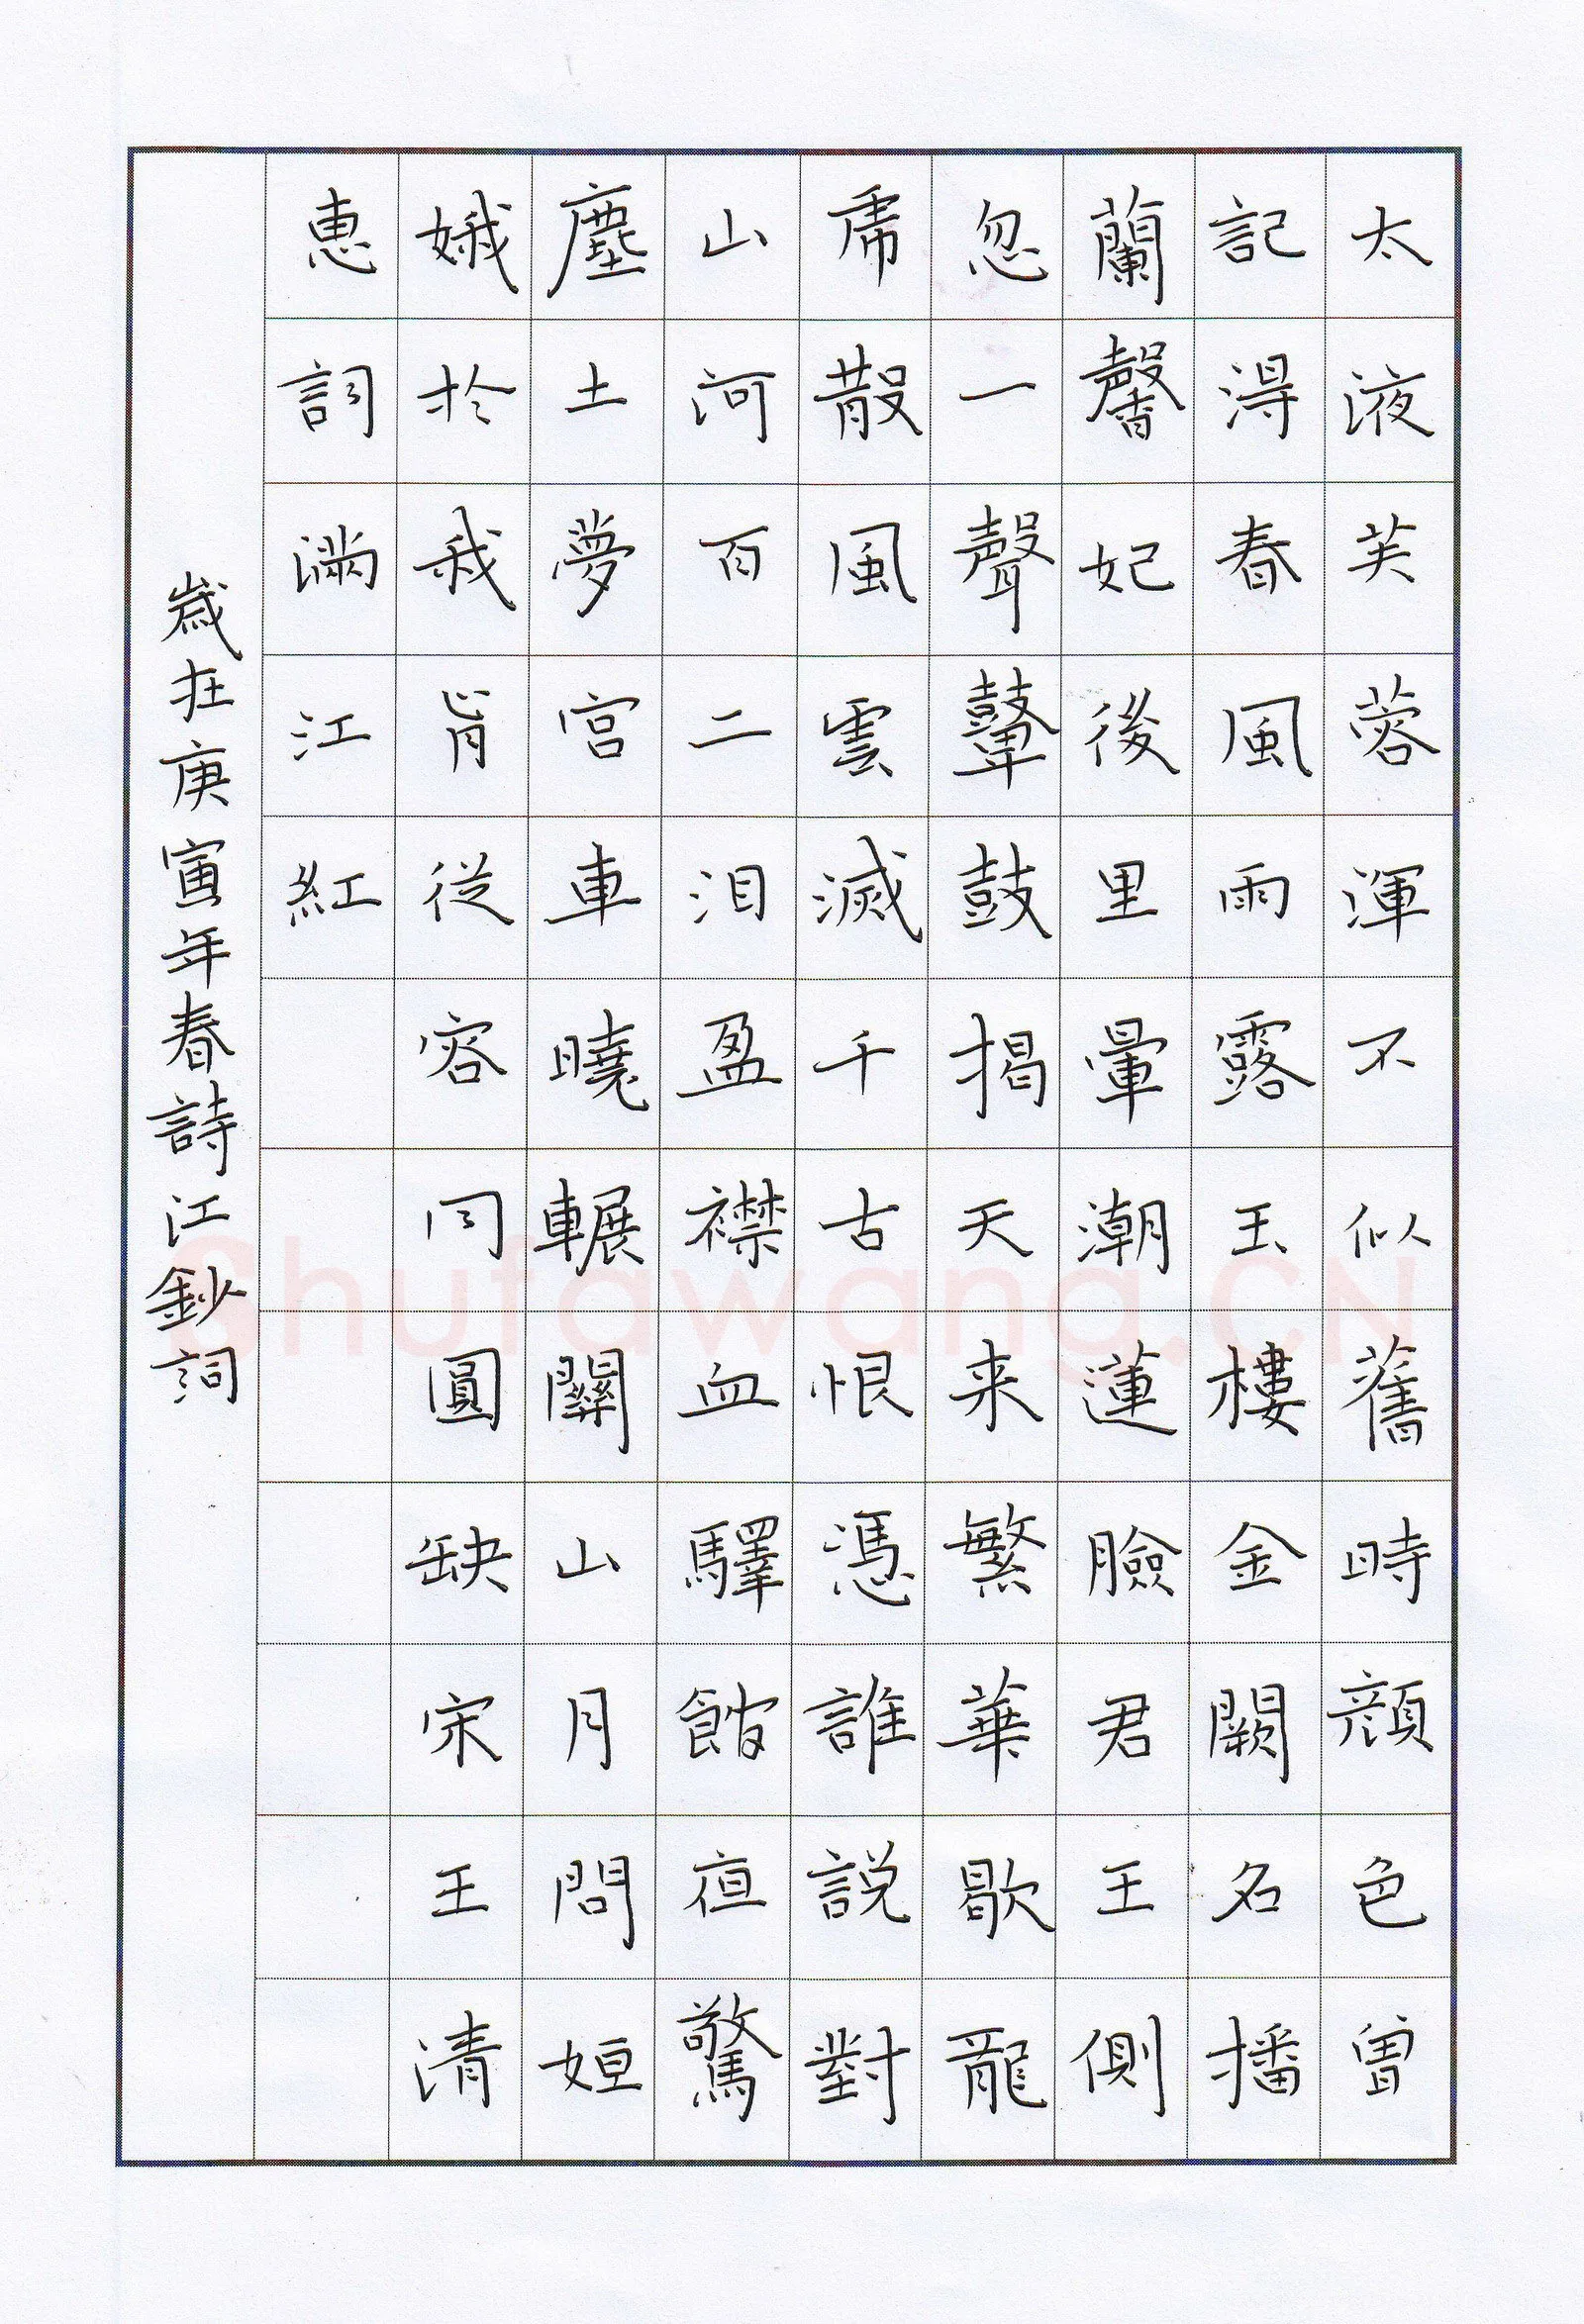 太液芙蓉渾不似舊時顔色曾
記得春風雨露玉樓金闕名播
蘭馨妃後里暈潮蓮臉君王側
忽一聲鼙鼓揭天来繁華歇龍
虎散風雲滅千古恨憑誰說對
山河百二泪盈襟血驛館夜驚
塵土夢宮車曉輾關山月問姮
娥於我肯從容同圓缺宋王清
惠詞滿江紅
歲在庚寅年春詩江鈔詞
Shufawang.CN